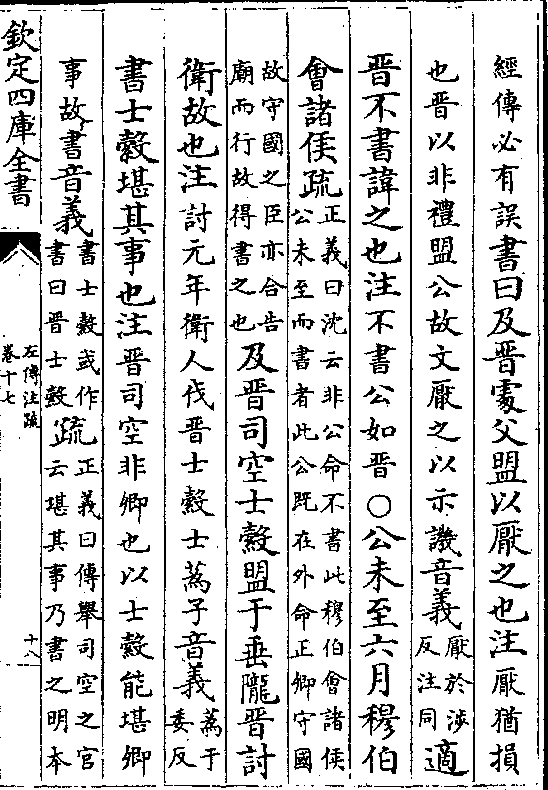 經傳必有誤書曰及晉處父盟以厭之也注厭猶損
也晉以非禮盟公故文厭之以示譏音義厭於涉反注同適
晉不書諱之也注不書公如晉○公未至六月穆伯
會諸侯疏正義曰沈云非公命不書此穆伯會諸侯公未至而書者此公既在外命正卿守國
故守國之臣亦合告廟而行故得書之也及晉司空士縠盟于垂隴晉討
衛故也注討元年衛人伐晉士縠士蒍子音義蒍于委反
書士縠堪其事也注晉司空非卿也以士縠能堪卿
事故書音義書士縠或作書曰晉士縠疏正義曰傳舉司空之官云堪其事乃書之明本
欽定四庫全書
左傳注疏
卷十七
十八